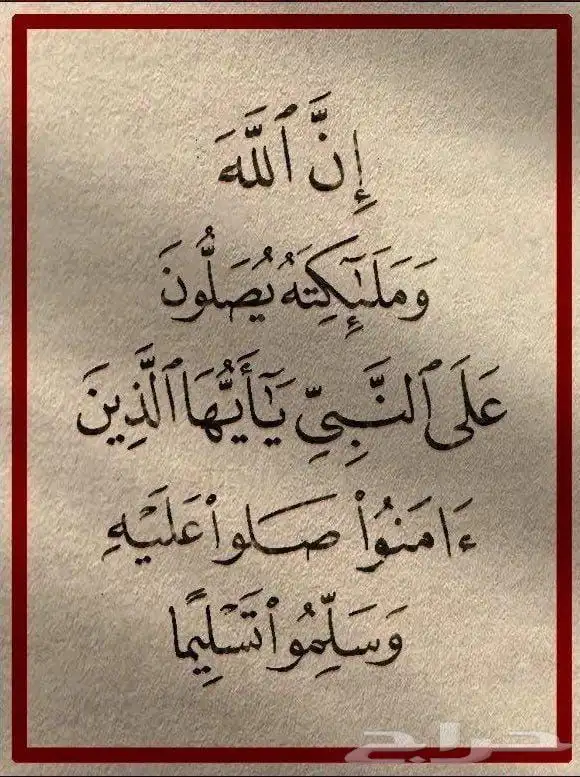 إِنَّ ٱللَّهَ
وَمَلَـٰٓئِكَتَهُ يُصَلُّونَ
عَلَى ٱلنَّبِىِّ يَـٰٓأَيُّهَا ٱلَّذِينَ
ءَامَنُوا۟ صَلوا۟ عَلَيْهِ
وَسَلِّمُوا۟ تَسْلِيمًا
حراج